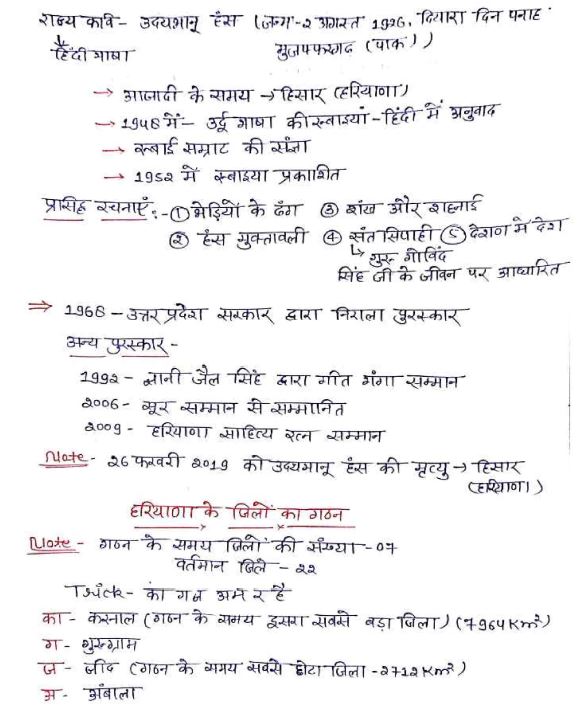 राज्य कवि - उदयभानु हंस (जन्म - २ अगस्त 1926, दियारा दिन पनाह
हिंदी भाषा मुजफ्फरगढ (पाक))
→ आजादी के समय → हिसार (हरियाणा)
→ 1948 में - उर्दू भाषा की रूबाइयां - हिंदी में अनुवाद
→ रूबाई सम्राट की संज्ञा
→ 1952 में रूबाइया प्रकाशित
प्रसिद्ध रचनाएँ :- ① भेड़ियों के ढंग ③ शंख और शहनाई
② हंस मुक्तावली ④ संत सिपाही ⑤ देशां में देश
↳ गुरु गोविंद
सिंह जी के जीवन पर आधारित
⇒ 1968 - उत्तर प्रदेश सरकार द्वारा निराला पुरस्कार
अन्य पुरस्कार -
1992 - ज्ञानी जैल सिंह द्वारा गीत गंगा सम्मान
2006 - सूर सम्मान से सम्मानित
2009 - हरियाणा साहित्य रत्न सम्मान
Note - 26 फरवरी 2019 को उदयभानू हंस की मृत्यु → हिसार
(हरियाणा)
हरियाणा के जिलों का गठन
Note - गठन के समय जिलों की संख्या - 07
वर्तमान जिले - 22
Trick - का गज अमर है
का - करनाल (गठन के समय दूसरा सबसे बड़ा जिला) (7964 Km²)
ग - गुरुग्राम
ज - जींद (गठन के समय सबसे छोटा जिला - 2712 Km²)
अ - अंबाला